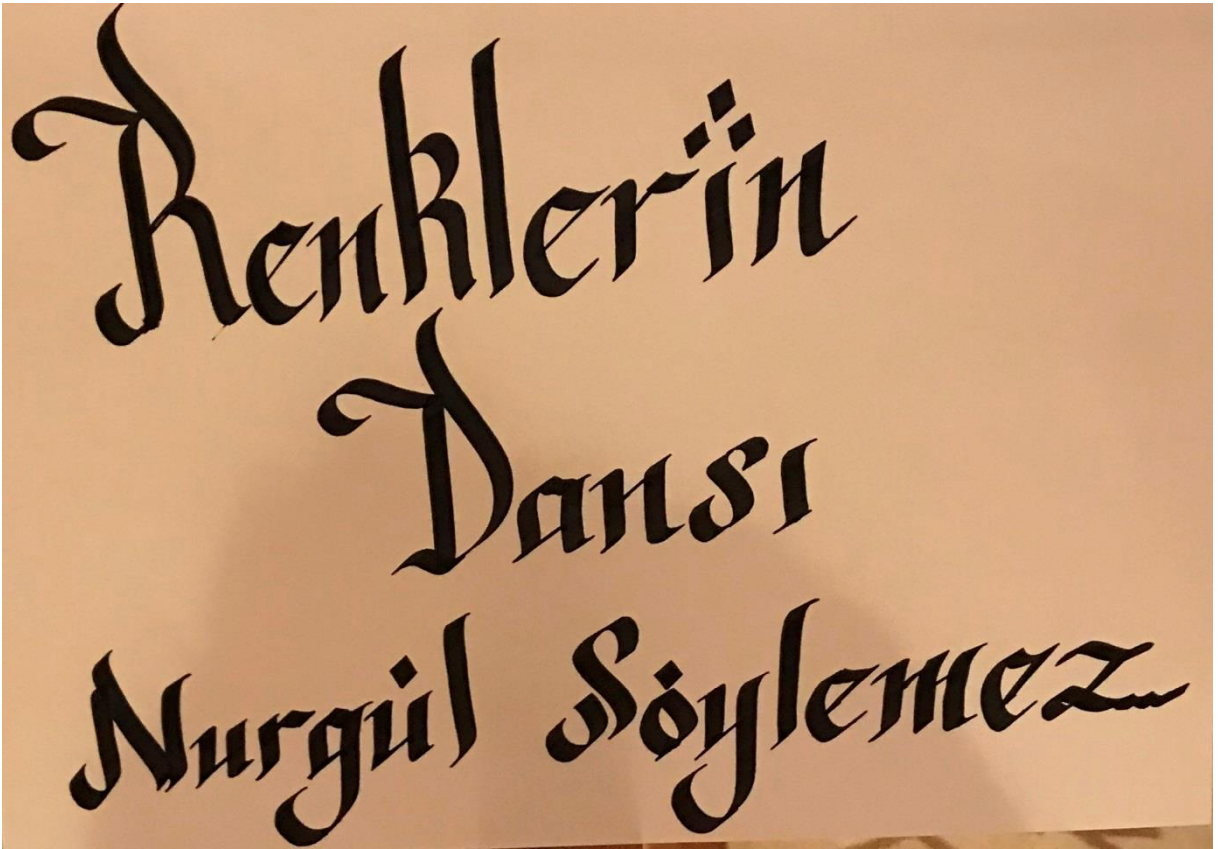 Renklerin
Dansı
Nurgül Söylemez